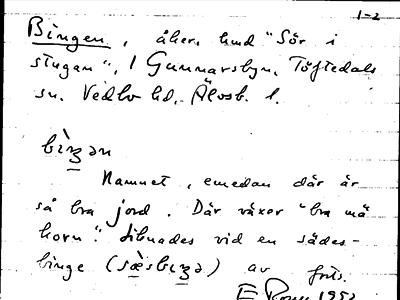 1-2
Bingen, åker, hmd "Sör i
stugan", i Gunnarsbyn, Töftedals
sn. Vedbo hd, Älvsb. l.
bìŋən
Namnet, emedan där är
så bra jord. Där växer "bra mä
korn". Liknades vid en sädes-
binge (sæ̀sbɪŋə) av forts.
E 1952